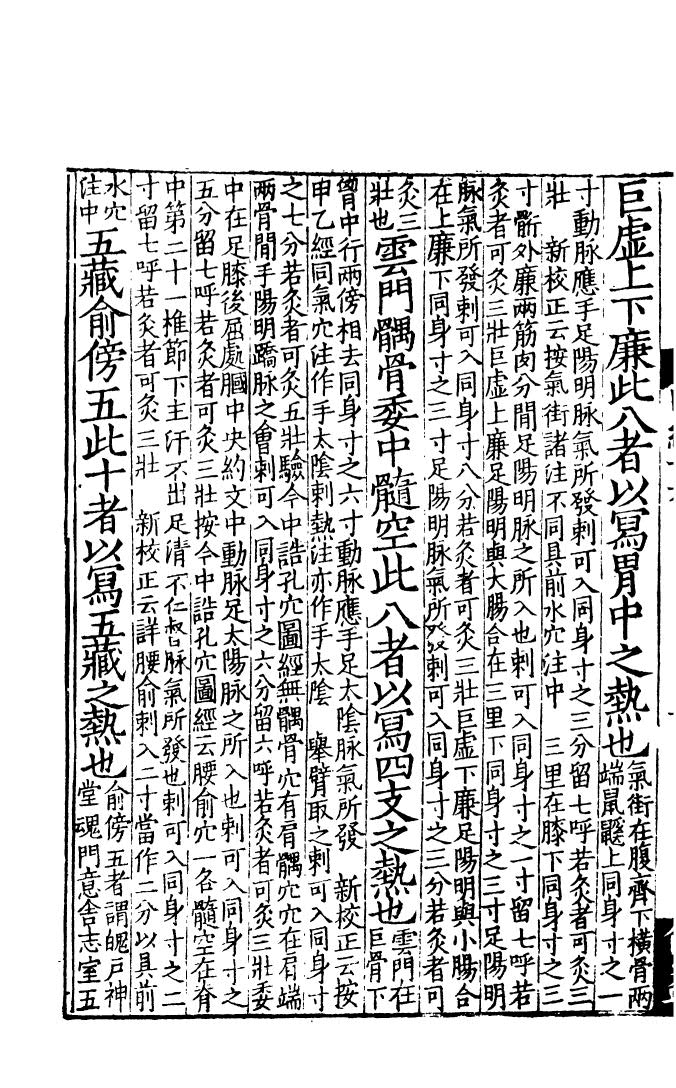 巨虛上下廉此八者以寫胃中之熱也氣街在腹齊下橫骨兩
端鼠鼷上同身寸之一
寸動脉應手足陽明脉氣所發刺可入同身寸之三分留七呼若灸者可灸三
壯 新校正云按氣街諸注不同具前水穴注中 三里在膝下同身寸之三
寸䯒外廉兩筋肉分間足陽明脉之所入也刺可入同身寸之一寸留七呼若
灸者可灸三壯巨虛上廉足陽明與大腸合在三里下同身寸之三寸足陽明
脉氣所發刺可入同身寸八分若灸者可灸三壯巨虛下廉足陽明與小腸合
在上廉下同身寸之三寸足陽明脉氣所發刺可入同身寸之三分若灸者可
灸三
壯也
雲門髃骨委中髓空此八者以寫四支之熱也雲門在
巨骨下
胷中行兩傍相去同身寸之六寸動脉應手足太陰脉氣所發 新校正云按
甲乙經同氣穴注作手太陰刺熱注亦作手太陰 舉臂取之刺可入同身寸
之七分若灸者可灸五壯驗今中誥孔穴圖經無髃骨穴有肩髃穴穴在肩端
兩骨間手陽明蹻脉之會刺可入同身寸之六分留六呼若灸者可灸三壯委
中在足膝後屈處膕中央約文中動脉足太陽脉之所入也刺可入同身寸之
五分留七呼若灸者可灸三壯按今中誥孔穴圖經云腰俞穴一名髓空在脊
中第二十一椎節下主汗不出足清不仁督脉氣所發也刺可入同身寸之二
寸留七呼若灸者可灸三壯 新校正云詳腰俞刺入二寸當作二分以具前
水穴
注中
五藏俞傍五此十者以寫五藏之熱也俞傍五者謂魄戶神
堂魂門意舍志室五